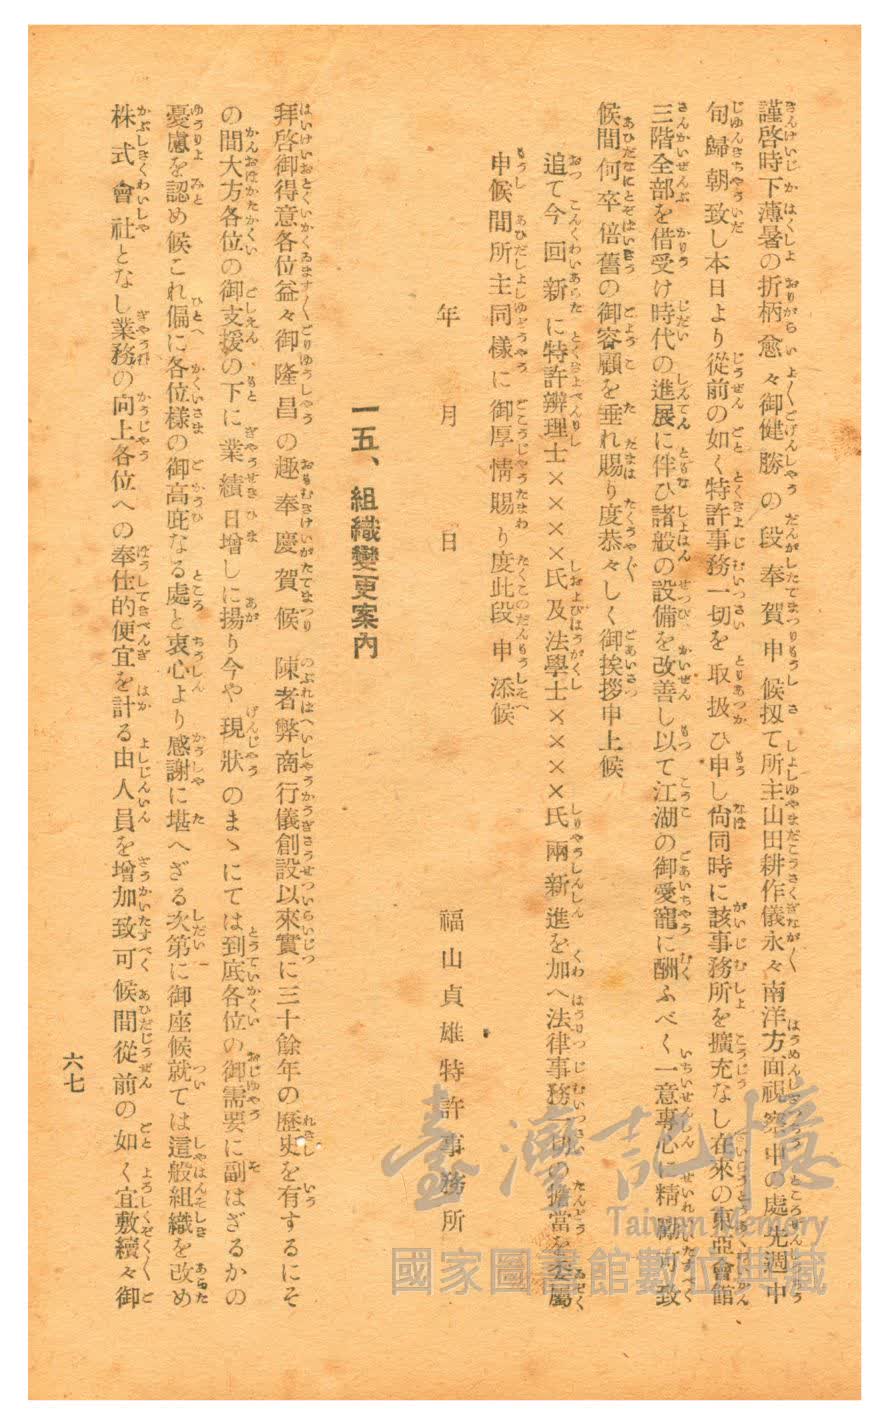 謹啓時下薄暑の折柄愈々御健勝の段奉賀申候扨て所主山田耕作儀永々南洋方面視察中の處先週中
旬歸朝致し本日より從前の如く特許事務一切を取扱ひ申し尙同時に該事務所を擴充なし在來の東亞會館
三階全部を借受け時代の進展に伴ひ諸般の設備を改善し以て江湖の御愛寵に酬ふべく一意專心に精勵可致
候間何卒倍舊の御容顧を垂れ賜り度恭々しく御挨拶申上候
追て今回新に特許辨理士××××氏及法學士××××氏兩新進を加へ法律事務一切の擔當を委屬
申候間所主同樣に御厚情賜り度此段申添候
年月日
福山貞雄特許事務所
一五、組織變更案內
拜啓御得意各位益々御隆昌の趣奉慶賀候　陳者弊商行儀創設以來實に三十餘年の歷史を有するにそ
の間大方各位の御支援の下に業績日增しに揚り今や現狀のまゝにては到底各位の御需要に副はざるかの
憂慮を認め候これ偏に各位樣の御高庇なる處と衷心より感謝に堪へざる次第に御座候就ては這般組織を改め
株式會社となし業務の向上各位への奉仕的便宜を計る由人員を增加致可候間從前の如く宜敷續々御
六七
臺灣記憶
Taiwan Memory
國家圖書館數位典藏